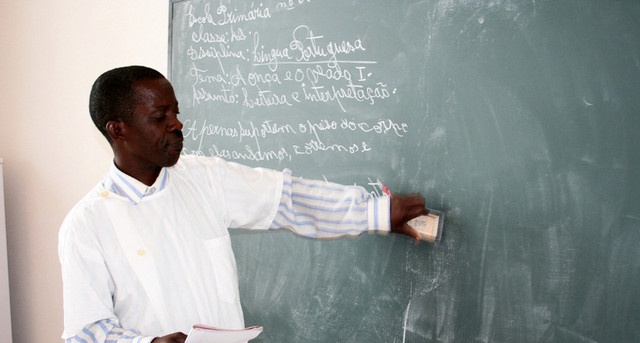 Escola Primária nº
classe: 4ª.
Disciplina: Língua Portuguesa
Tema: A onça e o veado I.
Assunto: Leitura e interpretação.
As pernas suportem o peso do corpo
nos e andamos, corremos e